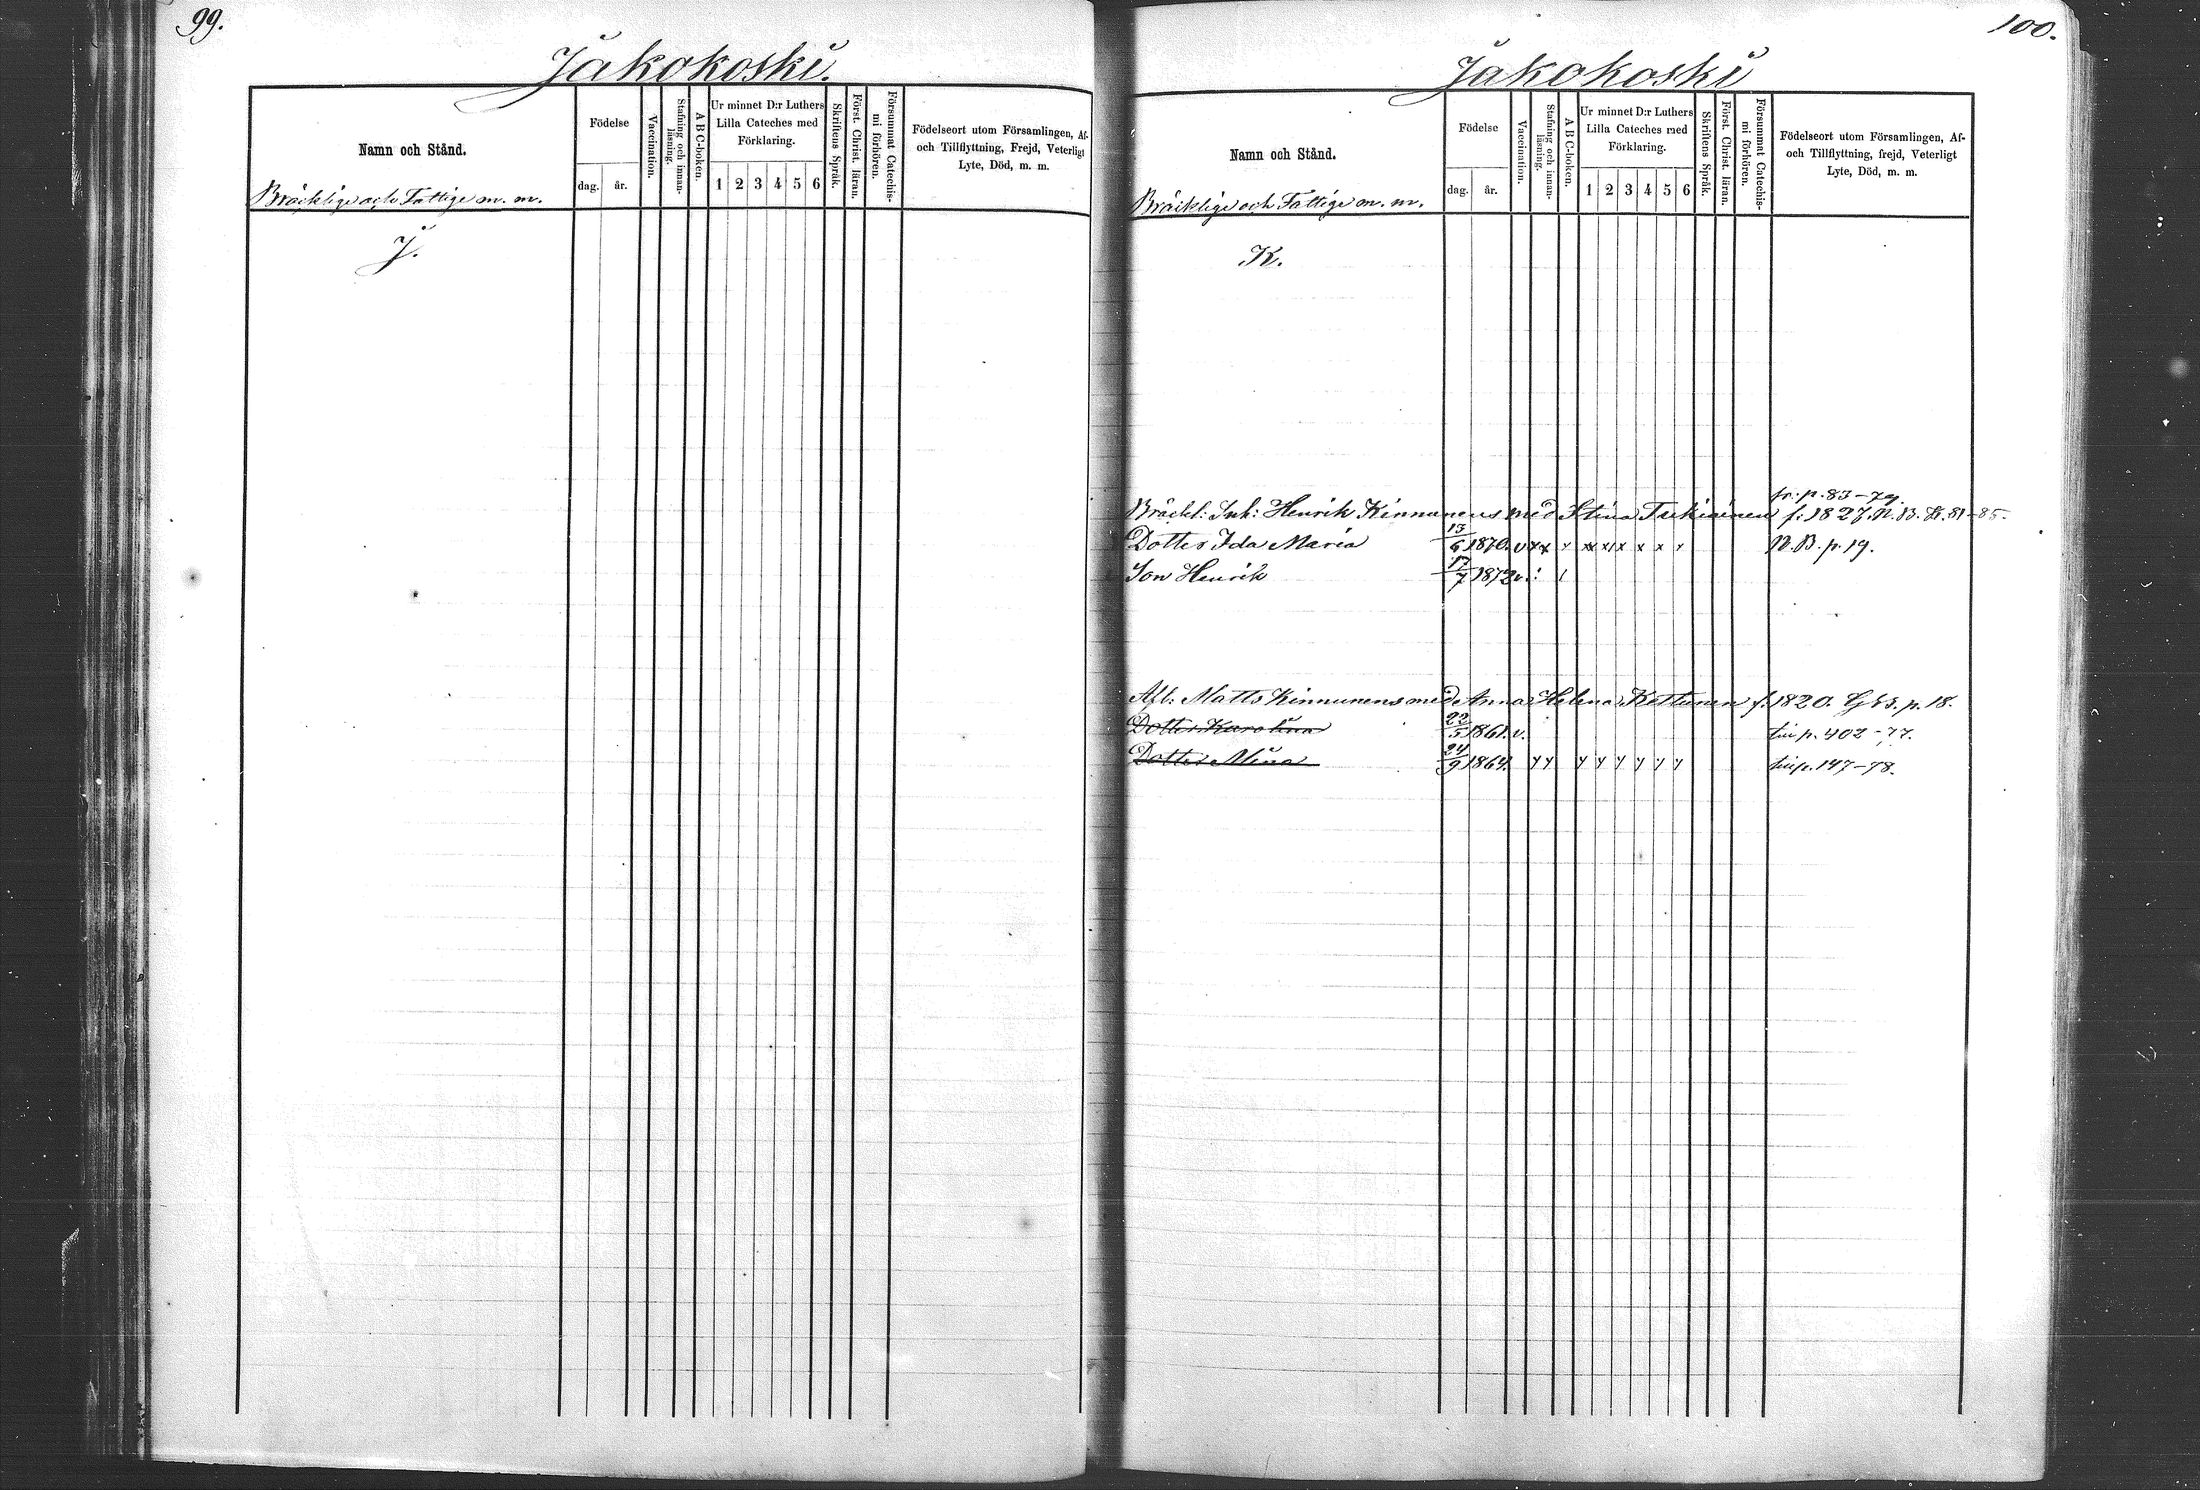 99.
Jakokoski.
Namn och Stånd.
Bräcklige och Fattige m. m.
Födelse
dag.
år.
Vaccination.
Stafning och innan-
läsning.
A B C-boken.
Ur minnet D:r Luthers
Lilla Cateches med
Förklaring.
1 2 3 4 5 6
Skriftens Språk.
Först. Christ. läran.
Försummat Catechis-
mi förhören.
Födelseort utom Församlingen, Af-
och Tillflyttning, Frejd, Veterligt
Lyte, Död, m. m.
J.
100.
Jakokoski
Namn och Stånd.
Bräcklige och Fattige m. m.
Födelse
dag.
år.
Vaccination.
Stafning och innan-
läsning.
A B C-boken.
Ur minnet D:r Luthers
Lilla Cateches med
Förklaring.
1 2 3 4 5 6
Skriftens Språk.
Först. Christ. läran.
Försummat Catechis-
mi förhören.
Födelseort utom Församlingen, Af-
och Tillflyttning, frejd, Veterligt
Lyte, Död, m. m.
K.
fr: p. 83-79
Bräckl: Inh: Henrik Kinnunens med Stina Turkiainen f: 1827. N. B. 81-85.
Dotter Ida Maria 13/6 1870. v x x x xx x x x x x N. B. p. 19.
Son Henrik 17/7 1872 v.
Afl: Matts Kinnunens med Anna Helena Kettunen f: 1820. p. 18.
Dotter Karolina 22/5 1861. v. p. 402-77.
Dotter Mina 24/9 1864. y y y y y y y y p. 147-78.